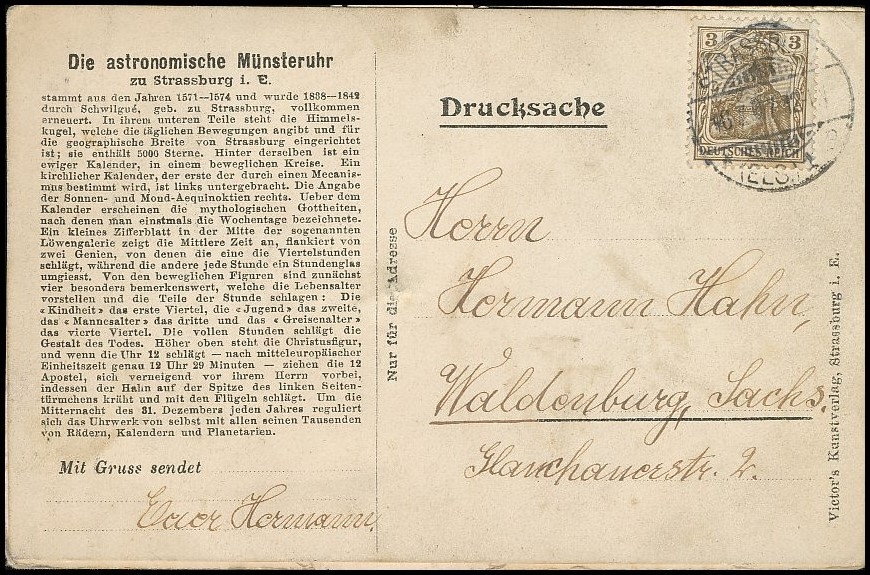 Die astronomische Münsteruhr
zu Strassburg i. E.
stammt aus den Jahren 1571—1574 und wurde 1838-1842
durch Schwilgué, geb. zu Strassburg, vollkommen
erneuert. In ihrem unteren Teile steht die Himmels-
kugel, welche die täglichen Bewegungen angibt und für
die geographische Breite von Strassburg eingerichtet
ist; sie enthält 5000 Sterne. Hinter derselben ist ein
ewiger Kalender, in einem beweglichen Kreise. Ein
kirchlicher Kalender, der erste der durch einen Mecanis-
mus bestimmt wird, ist links untergebracht. Die Angabe
der Sonnen- und Mond-Aequinoktien rechts. Ueber dem
Kalender erscheinen die mythologischen Gottheiten,
nach denen man einstmals die Wochentage bezeichnete.
Ein kleines Zifferblatt in der Mitte der sogenannten
Löwengalerie zeigt die Mittlere Zeit an, flankiert von
zwei Genien, von denen die eine die Viertelstunden
schlägt, während die andere jede Stunde ein Stundenglas
umgiesst. Von den beweglichen Figuren sind zunächst
vier besonders bemerkenswert, welche die Lebensalter
vorstellen und die Teile der Stunde schlagen: Die
«Kindheit» das erste Viertel, die «Jugend» das zweite,
das «Mannesalter» das dritte und das «Greisenalter»
das vierte Viertel. Die vollen Stunden schlägt die
Gestalt des Todes. Höher oben steht die Christusfigur,
und wenn die Uhr 12 schlägt — nach mitteleuropäischer
Einheitszeit genau 12 Uhr 29 Minuten — ziehen die 12
Apostel, sich verneigend vor ihrem Herrn vorbei,
indessen der Hahn auf der Spitze des linken Seiten-
türmchens kräht und mit den Flügeln schlägt. Um die
Mitternacht des 31. Dezembers jeden Jahres reguliert
sich das Uhrwerk von selbst mit allen seinen Tausenden
von Rädern, Kalendern und Planetarien.
Mit Gruss sendet
Euer Hermann.
Nur für die Adresse
Drucksache
3 3
DEUTSCHES REICH
Herrn
Hermann Hahn,
Waldenburg, Sachs.
Glauchauerstr. 2.
Victor's Kunstverlag, Strassburg i. E.